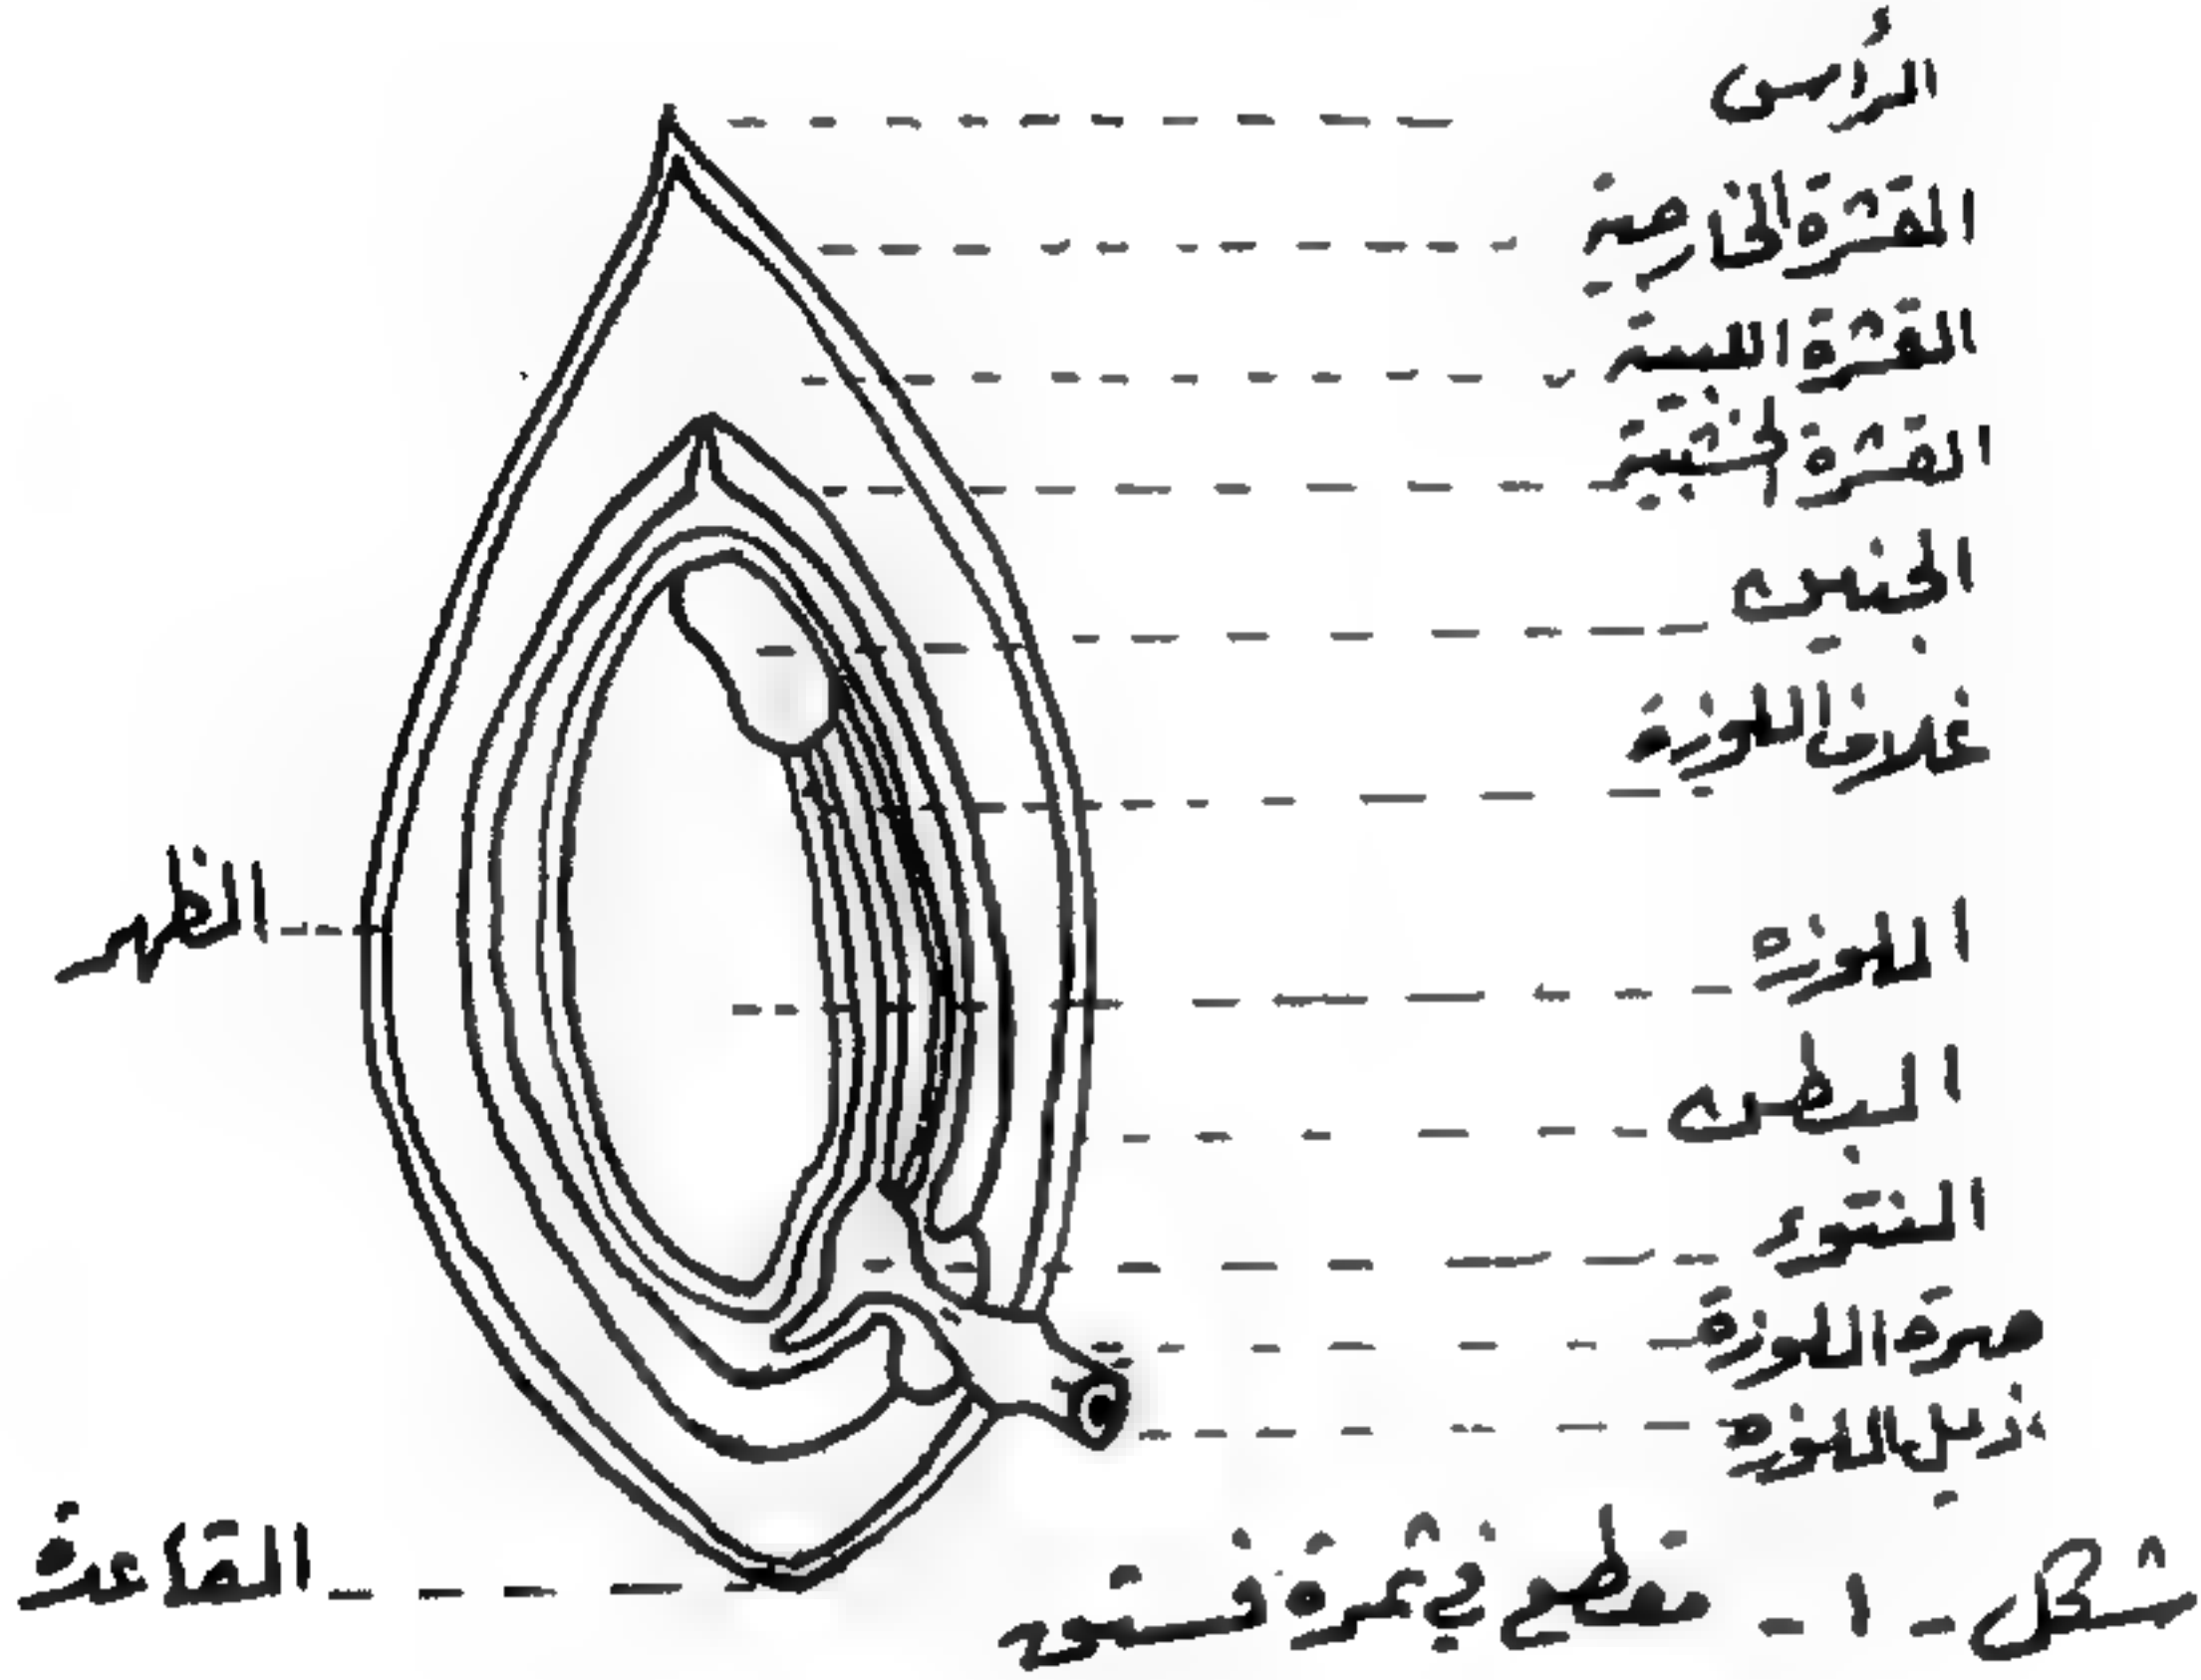 الرأس
القشرة الخارجية
القشرة اللبية
القشرة الخشبية
الجنين
غلاف اللوزة
اللوزة
الظهر
البطن
النتوء
صرة اللوزة
ذيل اللوزة
القاعدة
شكل - ١ - مقطع في ثمرة فستق